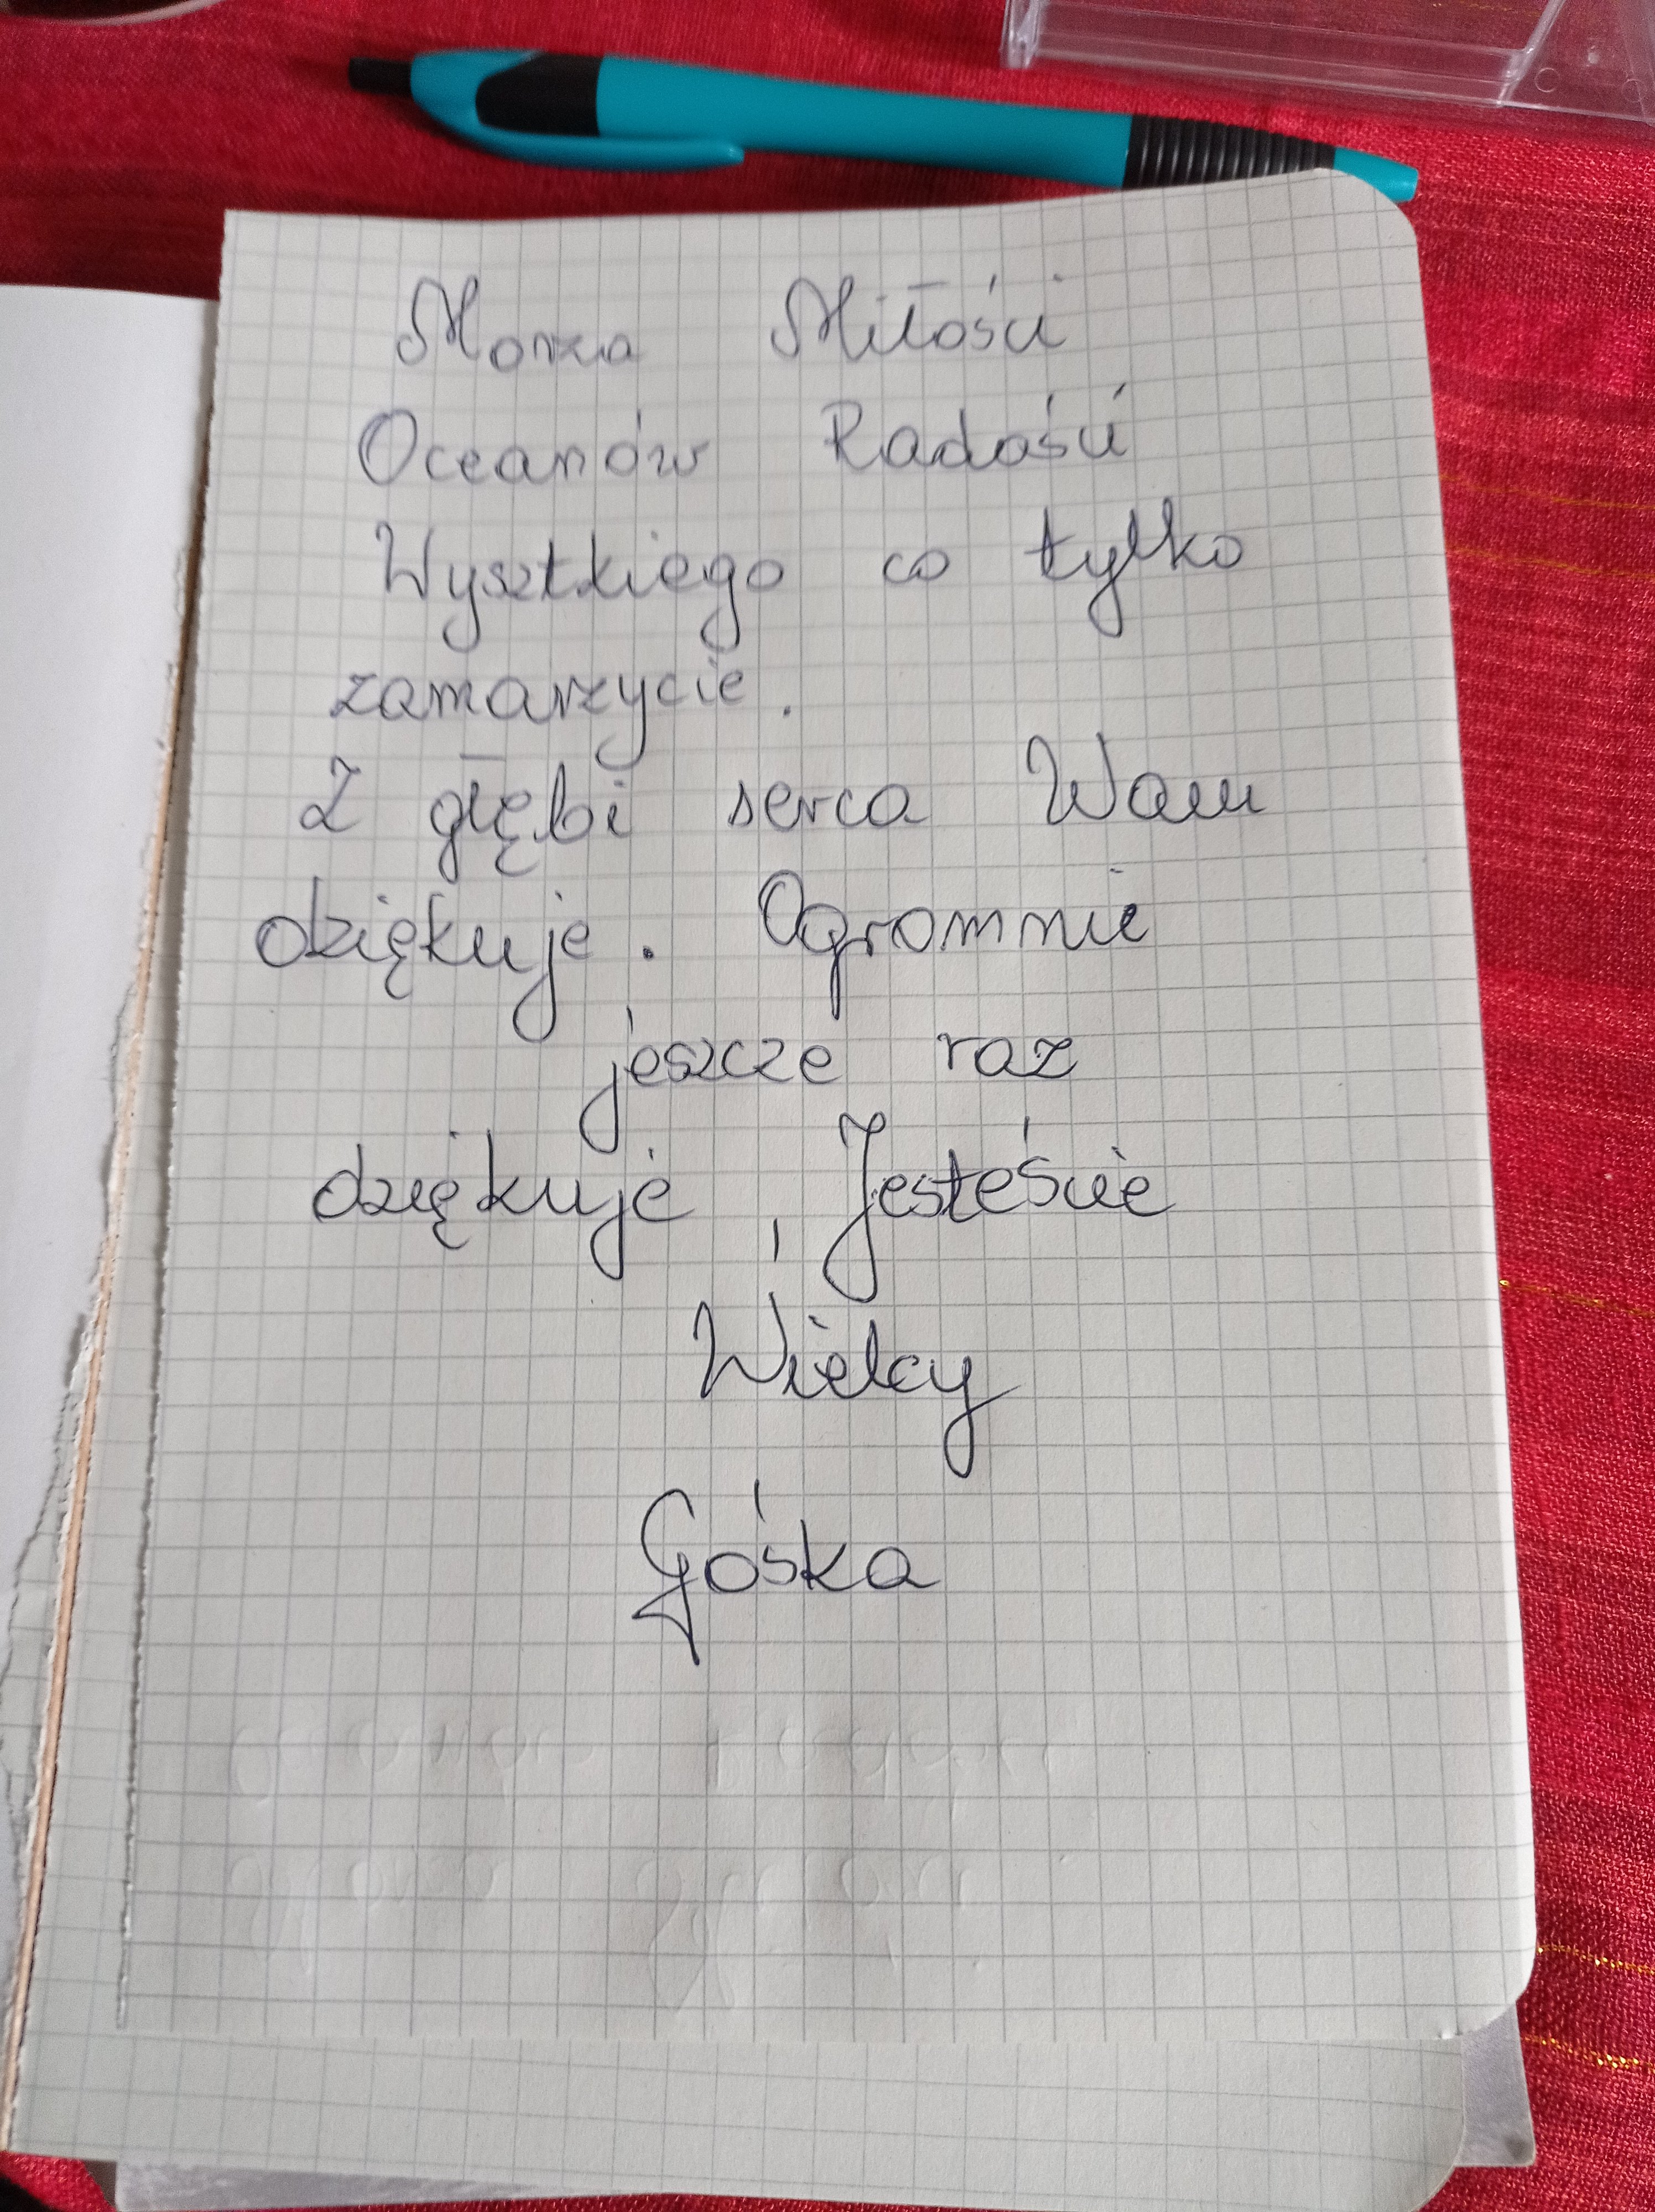 Morza Miłości
Oceanów Radości
Wysztkiego co tylko
zamarzycie.
Z głębi serca Wam
dziękuje. Ogromnie
jeszcze raz
dziękuje, Jesteście
Wielcy
Gośka